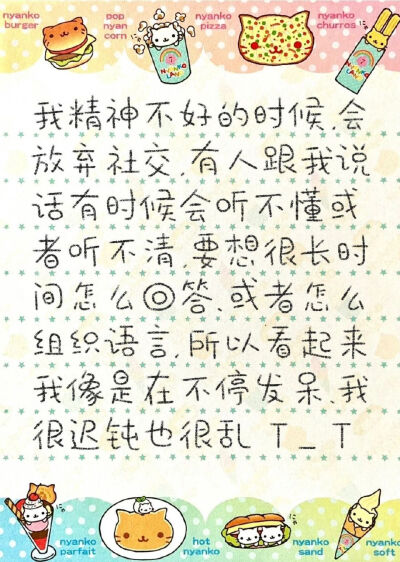 nyanko burger
pop nyan corn
nyanko pizza
nyanko churros
NYANKO LAND
我精神不好的时候,会
放弃社交,有人跟我说
话有时候会听不懂或
者听不清,要想很长时
间怎么回答,或者怎么
组织语言,所以看起来
我像是在不停发呆,我
很迟钝也很乱 T_T
nyanko parfait
hot nyanko
nyanko sand
nyanko soft